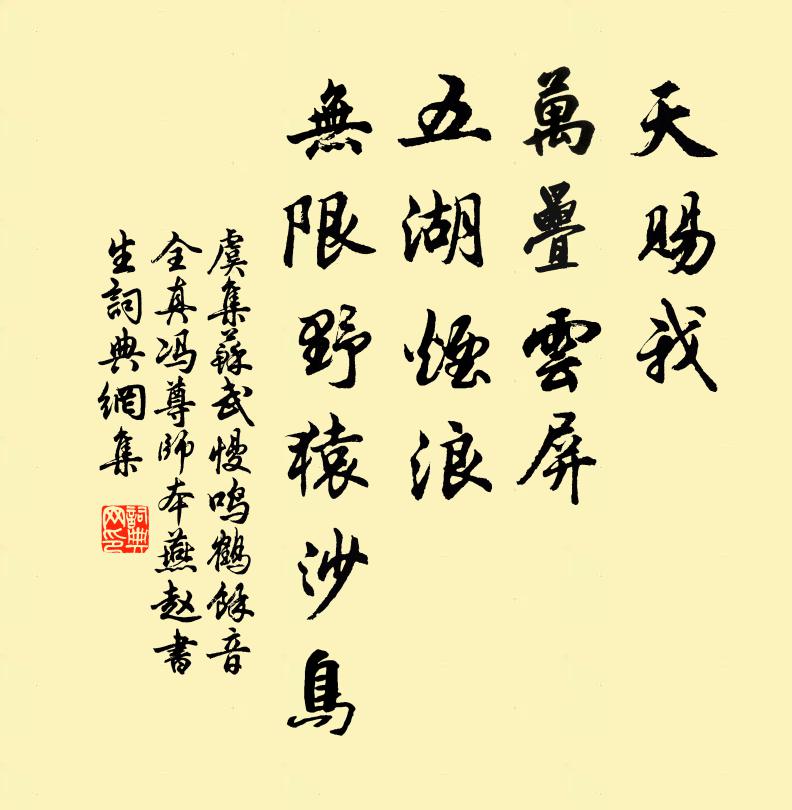 天賜我
萬疊雲屏
五湖煙浪
無限野猿沙鳥
虞集蘇武慢鳴鶴餘音
全真冯尊師本燕赵書
生詞典網集
詞典
网印